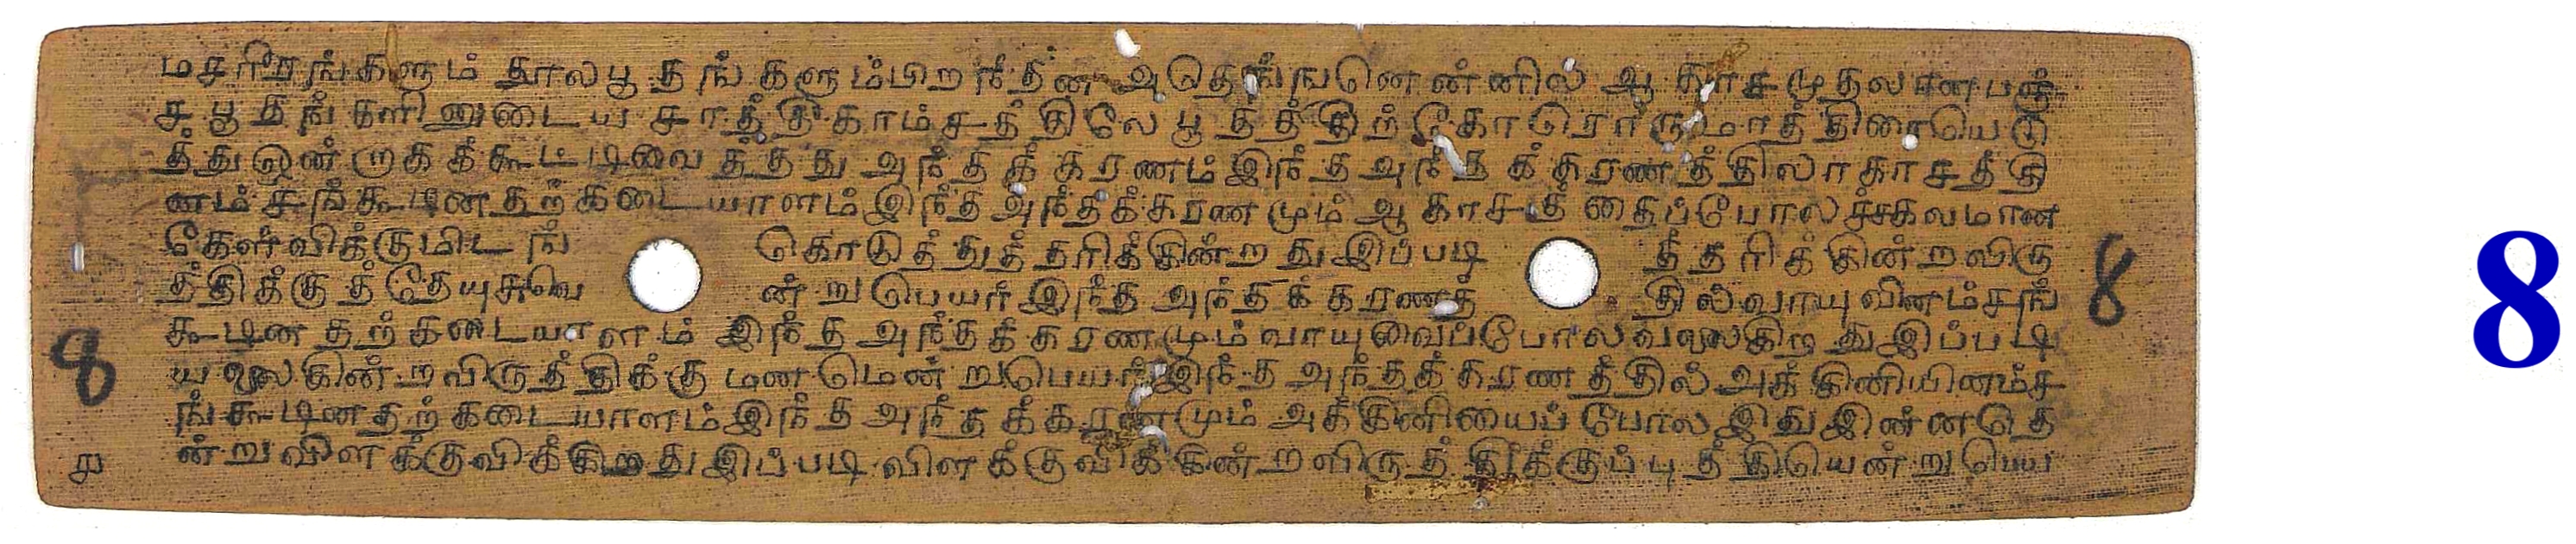 மசரீரங்களும் தூலபூதங்களும்பிறந்தன அதெங்ஙனெண்னில் ஆகாசமுதலானபஞ்
சபூதங்களினுடைய சாத்திகாம்சத்திலே பூதத்திற்கோரொருமாத்திரையெடு
த்துஒன்றாகக்கூட்டிவைத்தது அந்தக்கரணம் இந்த அந்தக்கரணத்திலாகாசத்தி
னம்சங்கூடினதற்கடையாளம் இந்த அந்தக்கரணமும் ஆகாசத்தைப்போலச்சகலமான
கேள்விக்குமிடங் கொடுத்துத்தரிக்கின்றது இப்படித்தரிக்கின்றவிரு
த்திக்கு ன்றுபெயர் இந்த அந்தக்கரணத்தில் வாயுவினம்சங்
கூடினதற்கடையாளம் இந்த அந்தக்கரணமும் வாயுவைப்போலவுலவுகிறது இப்படி
யுலவுகின்றவிருத்திக்கு மனமென்றுபெயர் இந்த அந்தக்கரணத்தில் அக்கினியினம்ச
ங்கூடினதற்கடையாளம் இந்த அந்தக்கரணமும் அக்கினியையப்போல இது இன்னதெ
ன்றுவிளக்குவிக்கிறது இப்படி விளக்குவிக்கின்றவிருத்திக்குப்புத்தியென்றுபெய
8
8
8